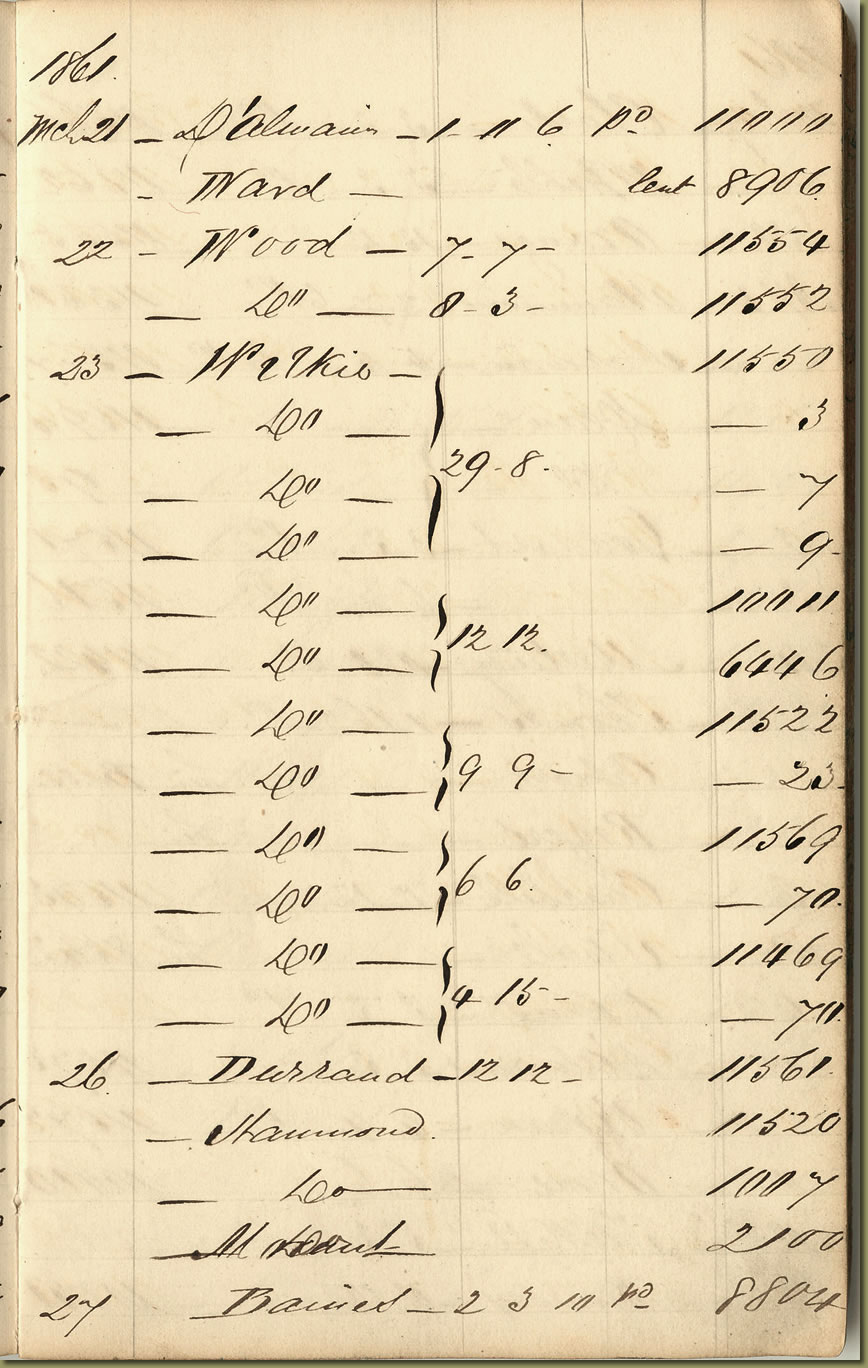 1861.
Mch 21 — D'Almain — 1 - 11 6 pd 11000
- Ward — lent 8906
22 - Wood — 7 - 7 - 11554
— Do — 8 - 3 - 11552
23 — Wilkie — 11550
— Do — — 3
— Do — 29 - 8 - — 7
— Do — — 9
— Do — 10011
— Do — 12 12. 6446
— Do — 11522
— Do — 9 9 - — 23
— Do — 11569
— Do — 6 6. — 70
— Do — 11469
— Do — 4 15 - — 70
26 — Durrand — 12 12 - 11561
— Hammond. 11520
— Do — 1007
2100
27 Baines — 2 3 10 pd 8804